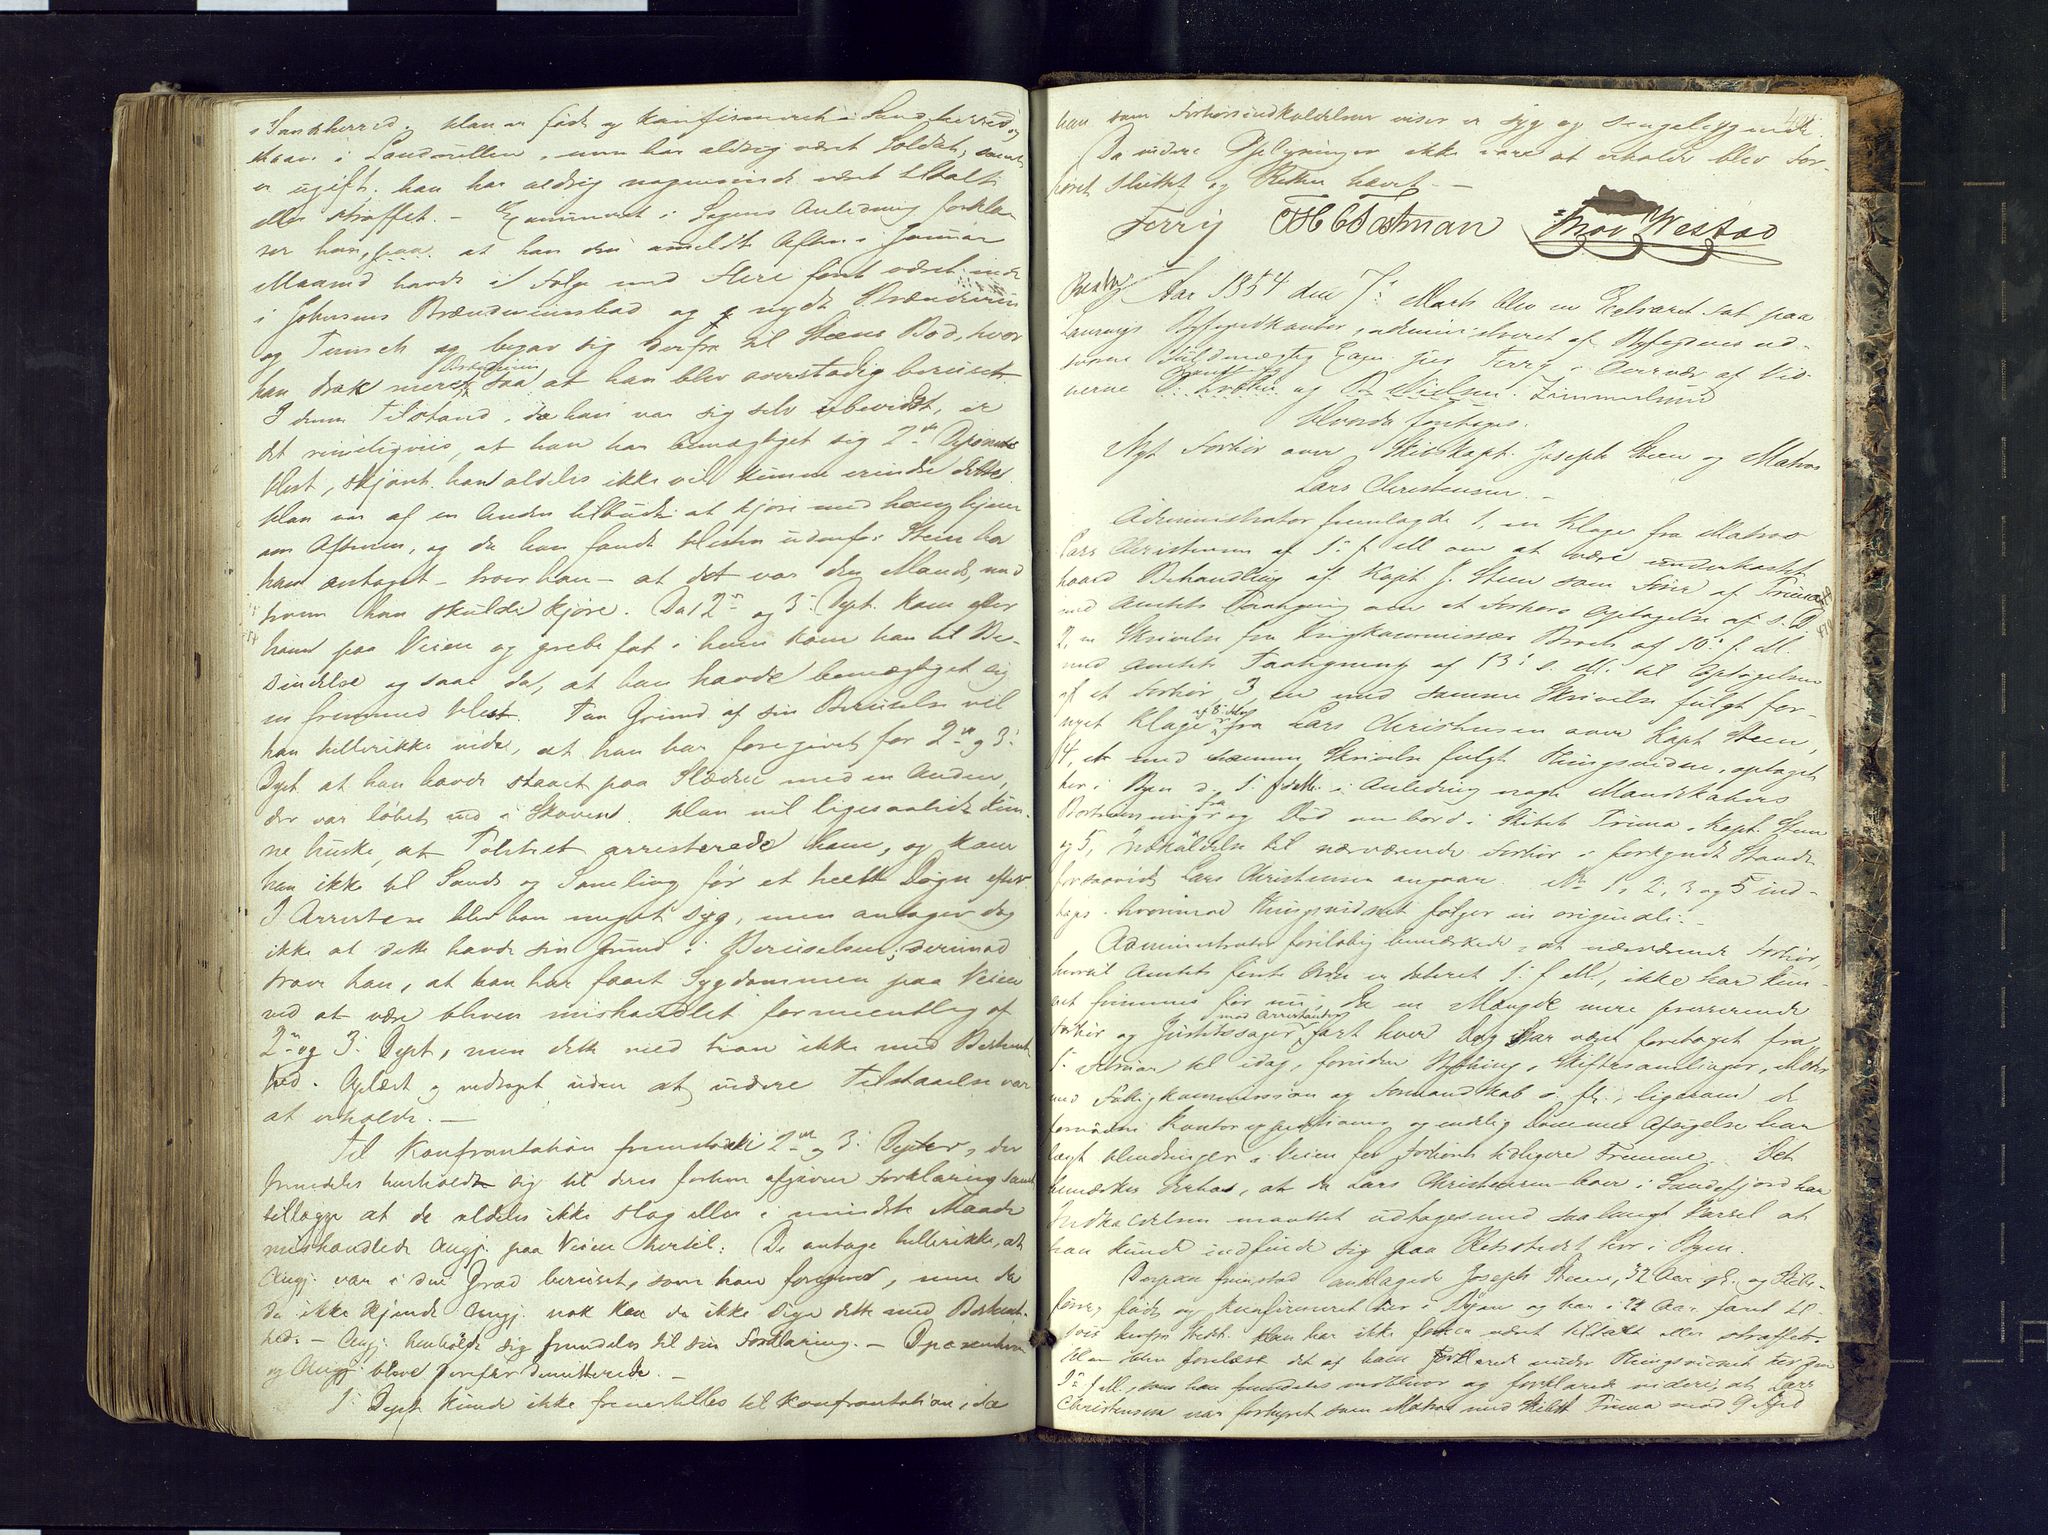 i Sandeherred. Han er født og konfirmeret i Sandeherred og
staar i Landrullen, men har aldrig været Soldat, samt
er ugift. han har aldrig nogensinde været tiltalt
eller straffet. – Examineret i Sagens Anledning forkla-
rer han, paa at han den anmeldte Aften i Januar
Maaned havde i Følge med Flere først været inde
i Johnsens Brændevinsbod og nydt Brændeviin
og Tuusch og begav sig derfra til Steens Bod, hvor
han drak mere Brændeviin saa at han blev overstadig beruset.
I denne Tilstand, da han var sig selv ubevidst, er
det rimeligviis, at han har bemægtiget sig 2den Deponents
Hest, skjønt han aldeles ikke vil kunne erindre dette
Han var af en Anden tilbudt at kjøre med ham hjem
om Aftenen, og da han fandt Hesten udenfor Steen har
han antaget – troer han – at det var den Mands, med
hvem han skulde kjøre. Da 2den og 3die Dept. kom efter
ham paa Veien og grebe fat i ham kom han til Be-
sindelse og saae da, at han havde bemægtiget sig
en fremmed Hest. Paa Grund af sin Beruselse vil
han hellerikke vide, at han har foregivet for 2den og 3die
Dept. at han havde staaet paa Slæden med en Anden,
der var løbet ind i Skoven. Han vil ligesaalidt kun-
ne huske, at Politiet arresterede ham, og kom
han ikke til Sands og Samling før et heelt Døgn efter.
I Arresten blev han meget syg, men antager dog
ikke at dette havde sin Grund i Beruselsen; derimod
troer han, at han har faaet Sygdommen paa Veien
ved at være bleven mishandlet formeentlig af
2den og 3die Dept, men dette veed han ikke med Bestemt
hed. Oplæst og vedtaget uden at videre Tilstaaelse var
at erholde. –
Til Konfrontation fremstode 2den og 3die Depter, der
fremdeles henholdt sig til deres forhen afgivne Forklaring samt
tillagde at de aldeles ikke slog eller i mindste Maade
mishandlede Angj. paa Veien hertil. De antage hellerikke, at
Angj. var i den Grad beruset, som han foregiver, men da
de ikke kjende Angj. nok kan de ikke sige dette med Bestemt-
hed. – Angj. henholdt sig fremdeles til sin Forklaring. – Deponenterne
og Angj. bleve derefter demitterede. –
1ste Dept kunde ikke fremstilles til Konfrontation, da
han som Forhørsindkaldelsen viser er syg og sengeliggende.
Da videre Oplysninger ikke vare at erholde blev For-
høret sluttet og Retten hævet. –
Ferry Thor Westad
Aar 1854 den 7de Marts blev en Extraret sat paa
Laurvigs Byfogedkontor, administreret af Byfogdens ed-
svorne Fuldmægtig Exam. jur. Ferry i Overvær af Vid-
nerne og Nielsen Zimmerlund
Hvorda foretages.
Nyt Forhør over Skibskapt. Joseph Steen og Matros
Lars Christensen. –
Administrator fremlagde 1, en Klage fra Matros
Lars Christensen af 1ste f. M. om at være underkastet
haard Behandling af Kapt. J. Steen som Fører af Trina
med Amtets Paategning om et Forhørs Optagelse af s. D.
2, en Skrivelse fra Krigskommissær Broch af 10de f. M.
med Amtets Paategning af 13de s. M. til Optagelsen
af et Forhør, 3, en med samme Skrivelse fulgt for-
nyet Klage fra Lars Christensen over Kapt. Steen,
4, et med samme Skrivelse fulgt Thingsvidne, optaget
her i Byen d. 1ste i Anledning nogle Mandskabers
Bortrømning fra og Død ombord i Skibet Trina, Kapt. Steen
og 5, Indkaldelse til nærværende Forhør i forkyndt Stand
forsaavidt Lars Christensen angaar. No 1, 2, 3 og 5 ind-
tages hvorimod Thingsvidnet følger in originali. –
Administrator foreløbig bemærkede, at nærværende Forhør,
hvortil Amtets første Ordre er dateret 1ste f. M., ikke har kun-
net fremmes før nu, da en Mængde mere presserende
Forhør og Justitssager med Arrestanter fast hver Dag har været foretaget fra
1ste Februar til idag, foruden Bything, Skiftesamlinger, Møder
med Fattigkommission og Formandskab o. fl., ligesom de
fornødne Kontorexpeditioner og endelig Dommes Afsigelse har
lagt Hindringer i Veien for Forhørets tidligere Fremme. Det
bemærkes derhos, at da Lars Christensen boer i Sandefjord har
Indkaldelsen maattet udtages med saa langt Varsel at
han kunde indfinde sig paa Retstedet her i Byen.
Derpaa fremstod anklagede Joseph Steen, 32 Aar gl. og Skibs-
fører, født og konfirmeret her i Byen og har i Aar faret til-
søes herfra Stedet. Han har ikke forhen været tiltalt eller straffet –
Han blev forelæst det af ham forklarede under Thingsvidnet her den
1ste f. M., som han fremdeles vedbliver og forklarede videre, at Lars
Christensen var forhyret som Matros med Skibet Trina med 9 Spd